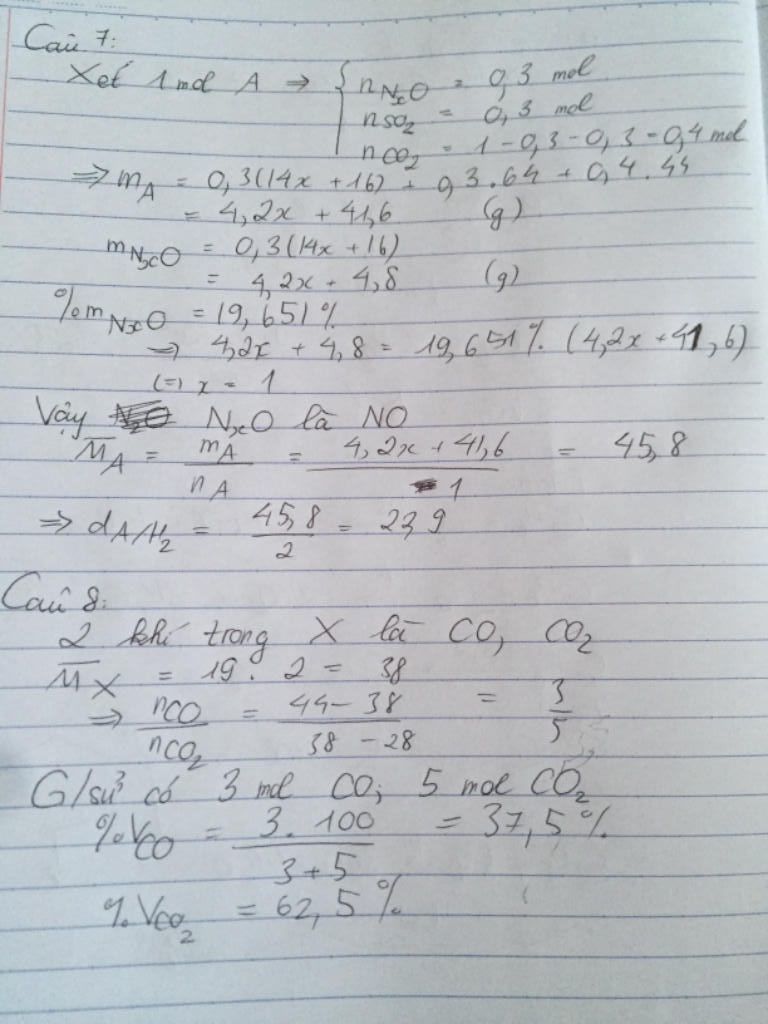 Câu 7:
Xét 1 mol A ⇒ { n NxO = 0,3 mol
n SO2 = 0,3 mol
n CO2 = 1 - 0,3 - 0,3 = 0,4 mol
⇒ mA = 0,3(14x + 16) + 0,3.64 + 0,4.44
= 4,2x + 41,6 (g)
m NxO = 0,3(14x + 16)
= 4,2x + 4,8 (g)
%m NxO = 19,651%
⇒ 4,2x + 4,8 = 19,651% (4,2x + 41,6)
(=) x = 1
Vậy NxO là NO
M̅A = mA / nA = (4,2x + 41,6) / 1 = 45,8
⇒ d A/H2 = 45,8 / 2 = 22,9
Câu 8:
2 khí trong X là CO, CO2
M̅X = 19.2 = 38
⇒ nCO / nCO2 = (44 - 38) / (38 - 28) = 3/5
G/sử có 3 mol CO; 5 mol CO2
%VCO = 3.100 / (3 + 5) = 37,5%
%VCO2 = 62,5%